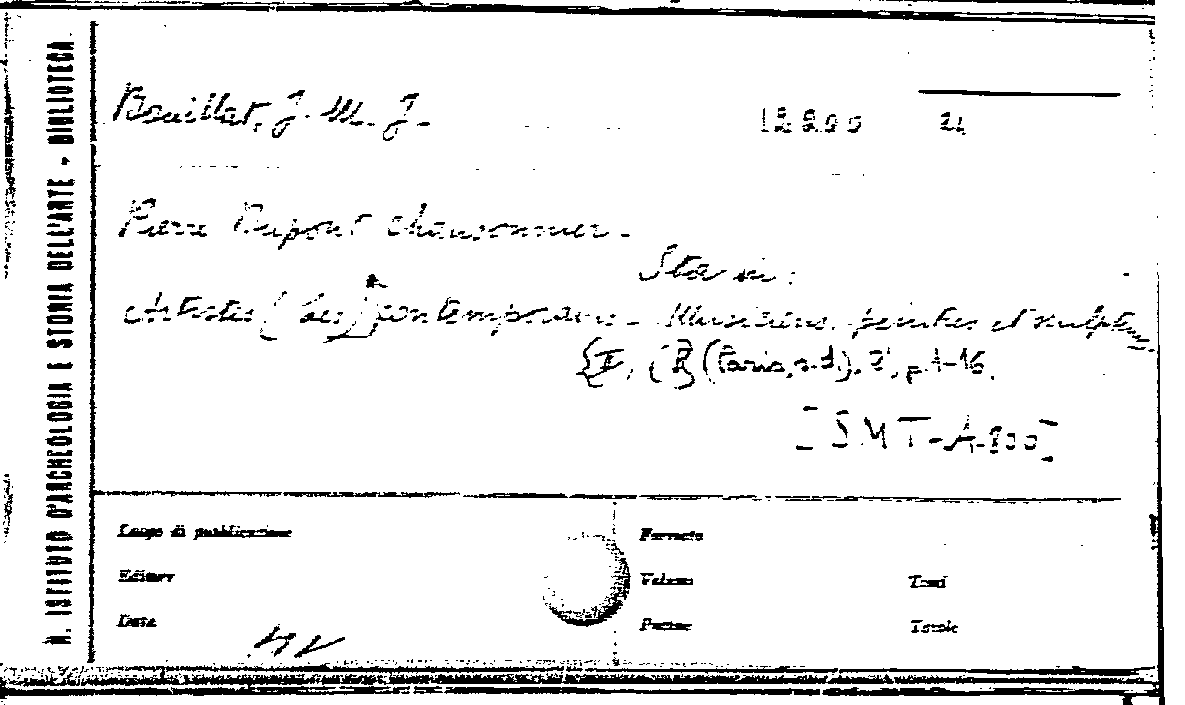 R. ISTITUTO D'ARCHEOLOGIA E STORIA DELL'ARTE - BIBLIOTECA
Bouillat, J. M. J.
12200 24
Pierre Dupont chansonnier.
Sta in:
Artistes (Les) contemporains - Musiciens, peintres et sculpteurs.
(Paris, s.d.), 2', p. 1-16.
[SMT-A-800]
Luogo di pubblicazione
Formato
Editore
Volume
Tomi
Data
Pagine
Tavole